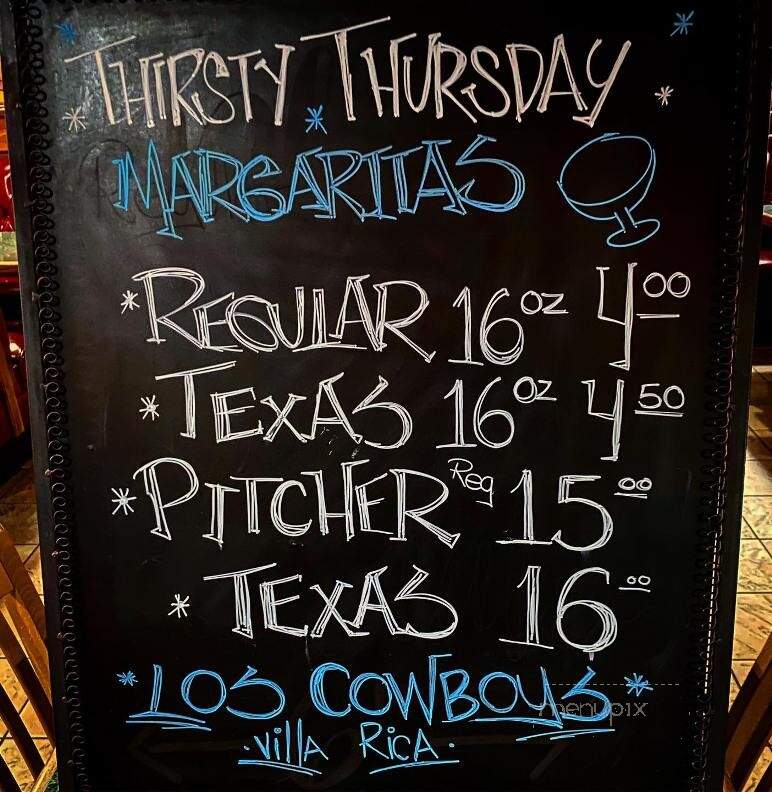 THIRSTY THURSDAY
MARGARITAS
* REGULAR 16oz 4.00
* TEXAS 16oz 4.50
* PITCHER Reg 15.00
* TEXAS 16.00
* LOS COWBOYS *
menupix
·VillA RicA·